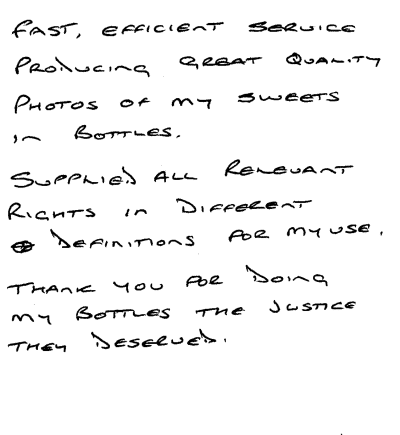 FAST, EFFICIENT SERVICE
PRODUCING GREAT QUALITY
PHOTOS OF MY SWEETS
IN BOTTLES.
SUPPLIED ALL RELEVANT
RIGHTS IN DIFFERENT
DEFINITIONS FOR MY USE.
THANK YOU FOR DOING
MY BOTTLES THE JUSTICE
THEY DESERVED.